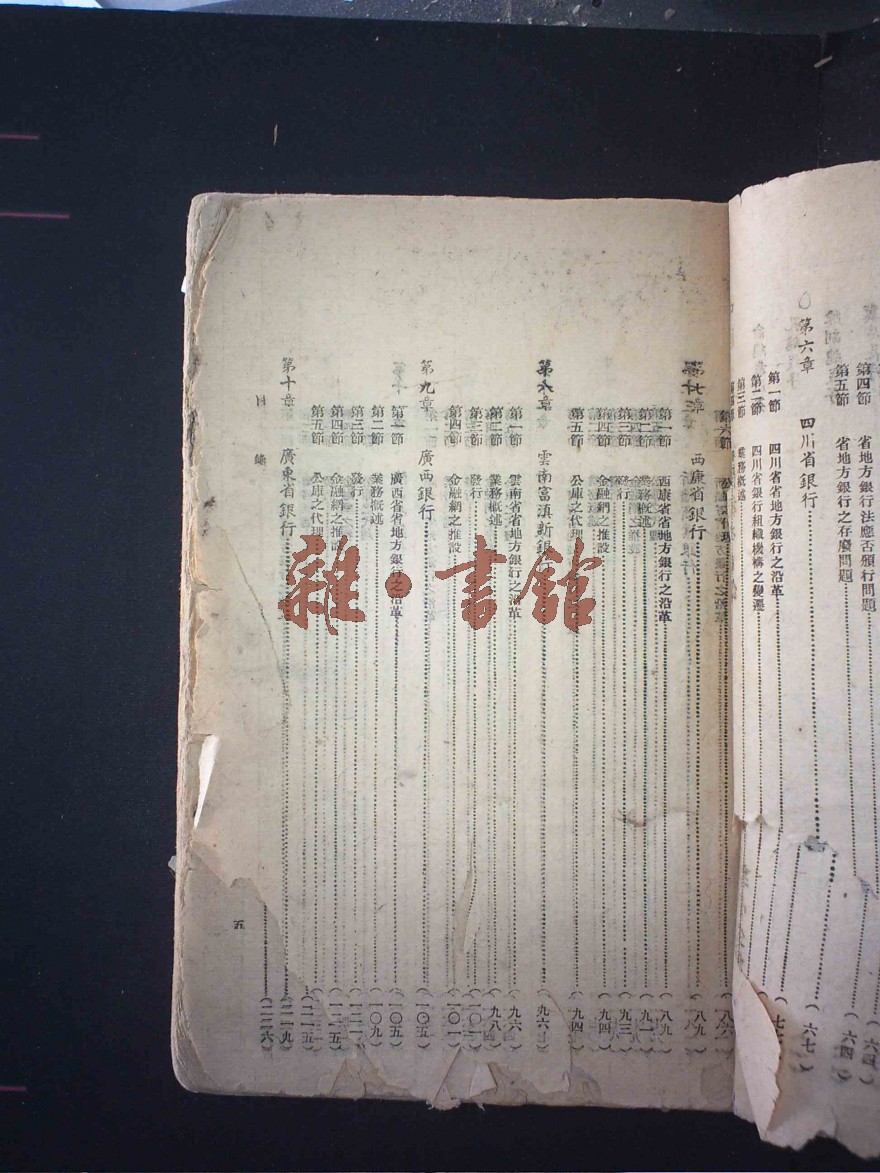 第四節 省地方銀行法應否頒行問題 (六四)
第五節 省地方銀行之存廢問題 (六四)
第六章 四川省銀行 (六七)
第一節 四川省省地方銀行之沿革
第二節 四川省銀行組織機構之變遷
第三節 業務概述
第六節 公庫之代理
西康省銀行 (八九)
第一節 西康省省地方銀行之沿革 (八九)
第二節 業務概述 (九一)
第三節 發行 (九三)
第四節 金融網之推設 (九四)
第五節 公庫之代理 (九四)
第八章 雲南富滇新銀 (九六)
第一節 雲南省省地方銀行之沿革 (九六)
第二節 業務概述 (九八)
第三節 發行
第四節 金融網之推設 (一〇一)
第九章 廣西銀行 (一〇五)
第一節 廣西省省地方銀行之沿革 (一〇五)
第二節 業務概述 (一〇九)
第三節 發行
第四節 金融網之推設
第五節 公庫之代理
第十章 廣東省銀行
目錄
五
雜·書館